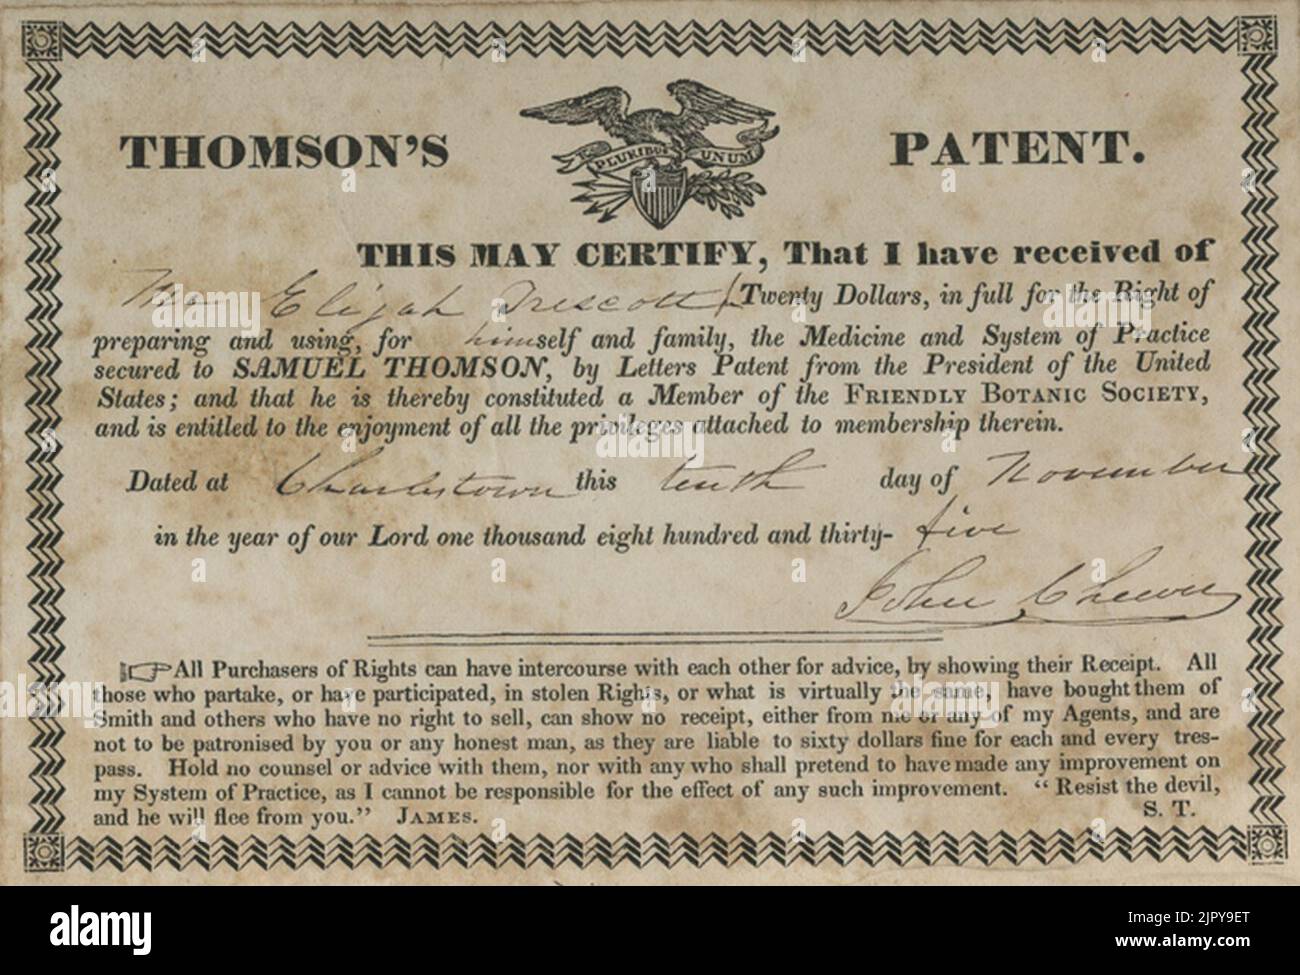 THOMSON'S PATENT.
E PLURIBUS UNUM
THIS MAY CERTIFY, That I have received of
Elijah Trescott Twenty Dollars, in full for the Right of
preparing and using, for himself and family, the Medicine and System of Practice
secured to SAMUEL THOMSON, by Letters Patent from the President of the United
States; and that he is thereby constituted a Member of the FRIENDLY BOTANIC SOCIETY,
and is entitled to the enjoyment of all the privileges attached to membership therein.
Dated at Charlestown this tenth day of November
in the year of our Lord one thousand eight hundred and thirty- five
John
☞ All Purchasers of Rights can have intercourse with each other for advice, by showing their Receipt. All
those who partake, or have participated, in stolen Rights, or what is virtually the same, have bought them of
Smith and others who have no right to sell, can show no receipt, either from me or any of my Agents, and are
not to be patronised by you or any honest man, as they are liable to sixty dollars fine for each and every tres-
pass. Hold no counsel or advice with them, nor with any who shall pretend to have made any improvement on
my System of Practice, as I cannot be responsible for the effect of any such improvement. "Resist the devil,
and he will flee from you." JAMES. S. T.
alamy
Image ID: 2JPY9ET
www.alamy.com